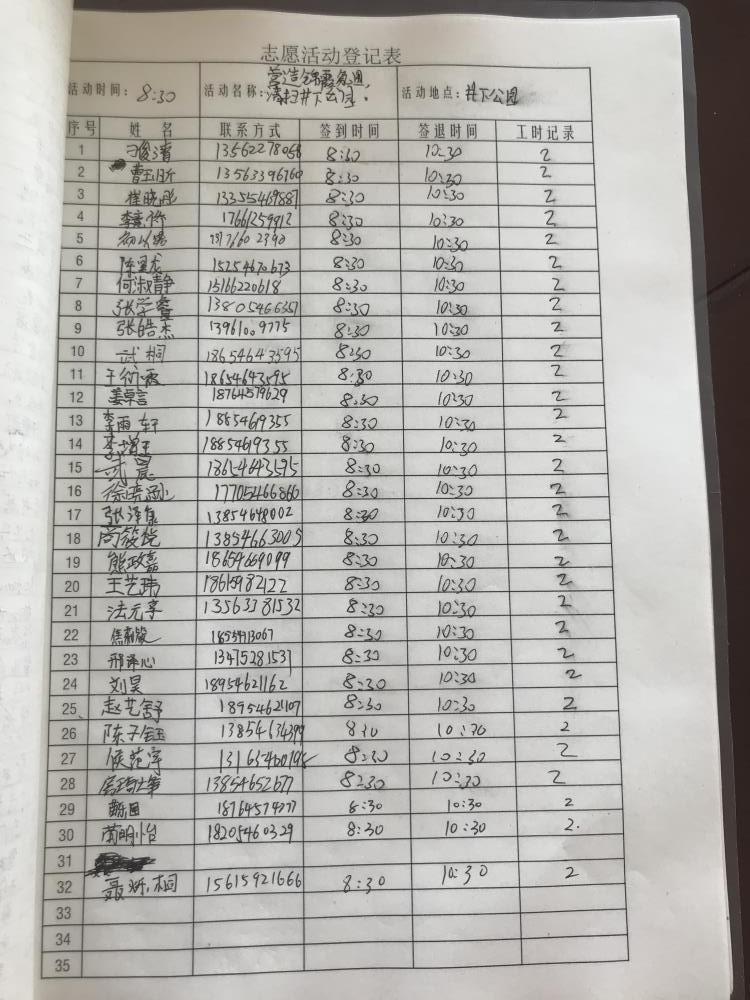 志愿活动登记表
活动时间: 8:30 活动名称: 营造锦霞家园, 清扫井下公园. 活动地点: 井下公园
序号 姓 名 联系方式 签到时间 签退时间 工时记录
1 刁俊清 13562278068 8:30 10:30 2
2 曹玉昕 13563396760 8:30 10:30 2
3 崔晓彤 13355469887 8:30 10:30 2
4 17661259912 8:30 10:30 2
5 8:30 10:30 2
6 15254670673 8:30 10:30 2
7 何淑静 15166220618 8:30 10:30 2
8 张学睿 13805466357 8:30 10:30 2
9 张皓杰 1396109775 8:30 10:30 2
10 武桐 18654643595 8:30 10:30 2
11 18654643595 8:30 10:30 2
12 姜卓言 18764579629 8:30 10:30 2
13 李雨轩 18854619355 8:30 10:30 2
14 18854619355 8:30 10:30 2
15 武晨 18654643595 8:30 10:30 2
16 17705466866 8:30 10:30 2
17 张泽良 13854648002 8:30 10:30 2
18 13854663005 8:30 10:30 2
19 熊政嘉 18659669099 8:30 10:30 2
20 王艺玮 18615982122 8:30 10:30 2
21 法元享 13563381532 8:30 10:30 2
22 18554713067 8:30 10:30 2
23 邢译心 13475281531 8:30 10:30 2
24 刘昊 18954621162 8:30 10:30 2
25 赵艺舒 18954621107 8:30 10:30 2
26 陈子钰 13854634399 8:30 10:30 2
27 侯范宇 8:30 10:30 2
28 13854652677 8:30 10:30 2
29 18764574077 8:30 10:30 2
30 蔺明怡 18205460329 8:30 10:30 2.
31
32 聂烁桐 15615921666 8:30 10:30 2
33
34
35